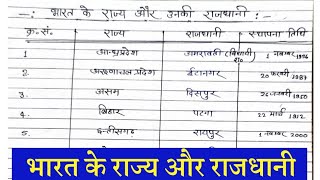 —: भारत के राज्य और उनकी राजधानी :—
क्र.सं. राज्य राजधानी स्थापना तिथि
1 आन्ध्रप्रदेश अमरावती 1 नवम्बर 1956
2 अरुणाचल प्रदेश ईटानगर 20 फरवरी 1987
3 असम दिसपुर 26 जनवरी 1950
4 बिहार पटना 22 मार्च 1912
5. छत्तीसगढ़ रायपुर 1 नवम्बर 2000
भारत के राज्य और राजधानी